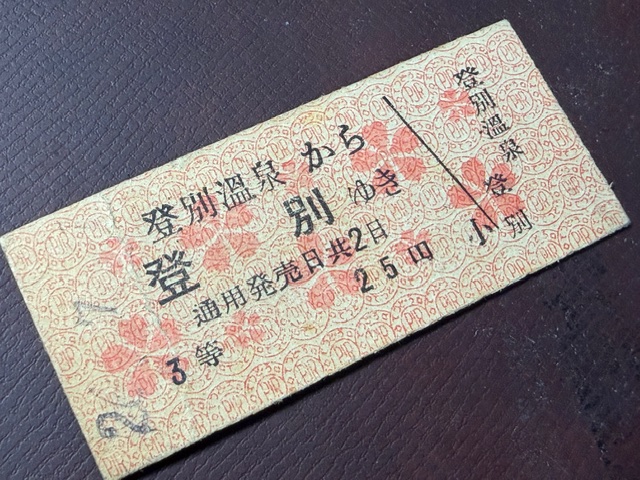 登別溫泉から
登別ゆき
通用発売日共2日
3等 25円
登別溫泉
登別
小